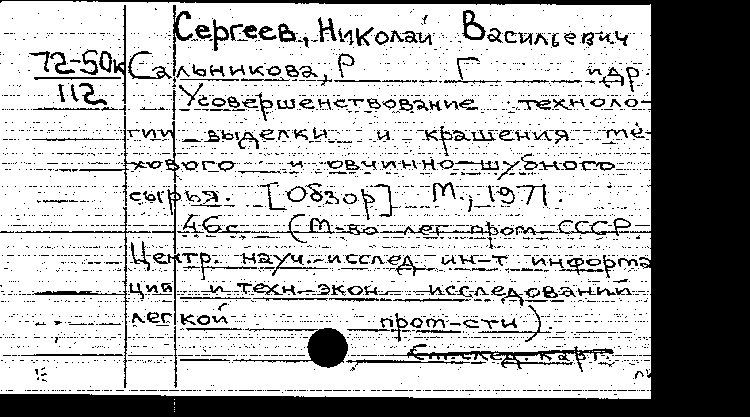 Сергеев, Николай Васильевич
72-50к
112
Сальникова, Р Г и др.
Усовершенствование техноло-
гии выделки и крашения ме-
хового и овчинно-шубного
сырья. [Обзор] М., 1971.
46с. (М-во лег пром. СССР.
Центр. науч.-исслед. ин-т информа
ции и техн.-экон. исследований
легкой пром-сти).
См. след. карт.